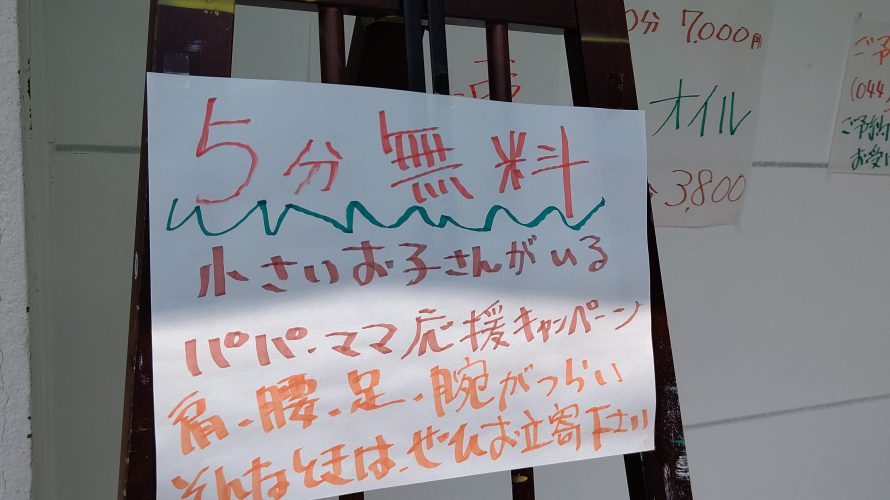 5分無料
小さいお子さんがいる
パパ・ママ応援キャンペーン
肩、腰、足、腕がつらい
そんなときは、ぜひお立寄下さい
0分 7,000円
オイル
3,800
ご予
(044)
ご予約
お受け